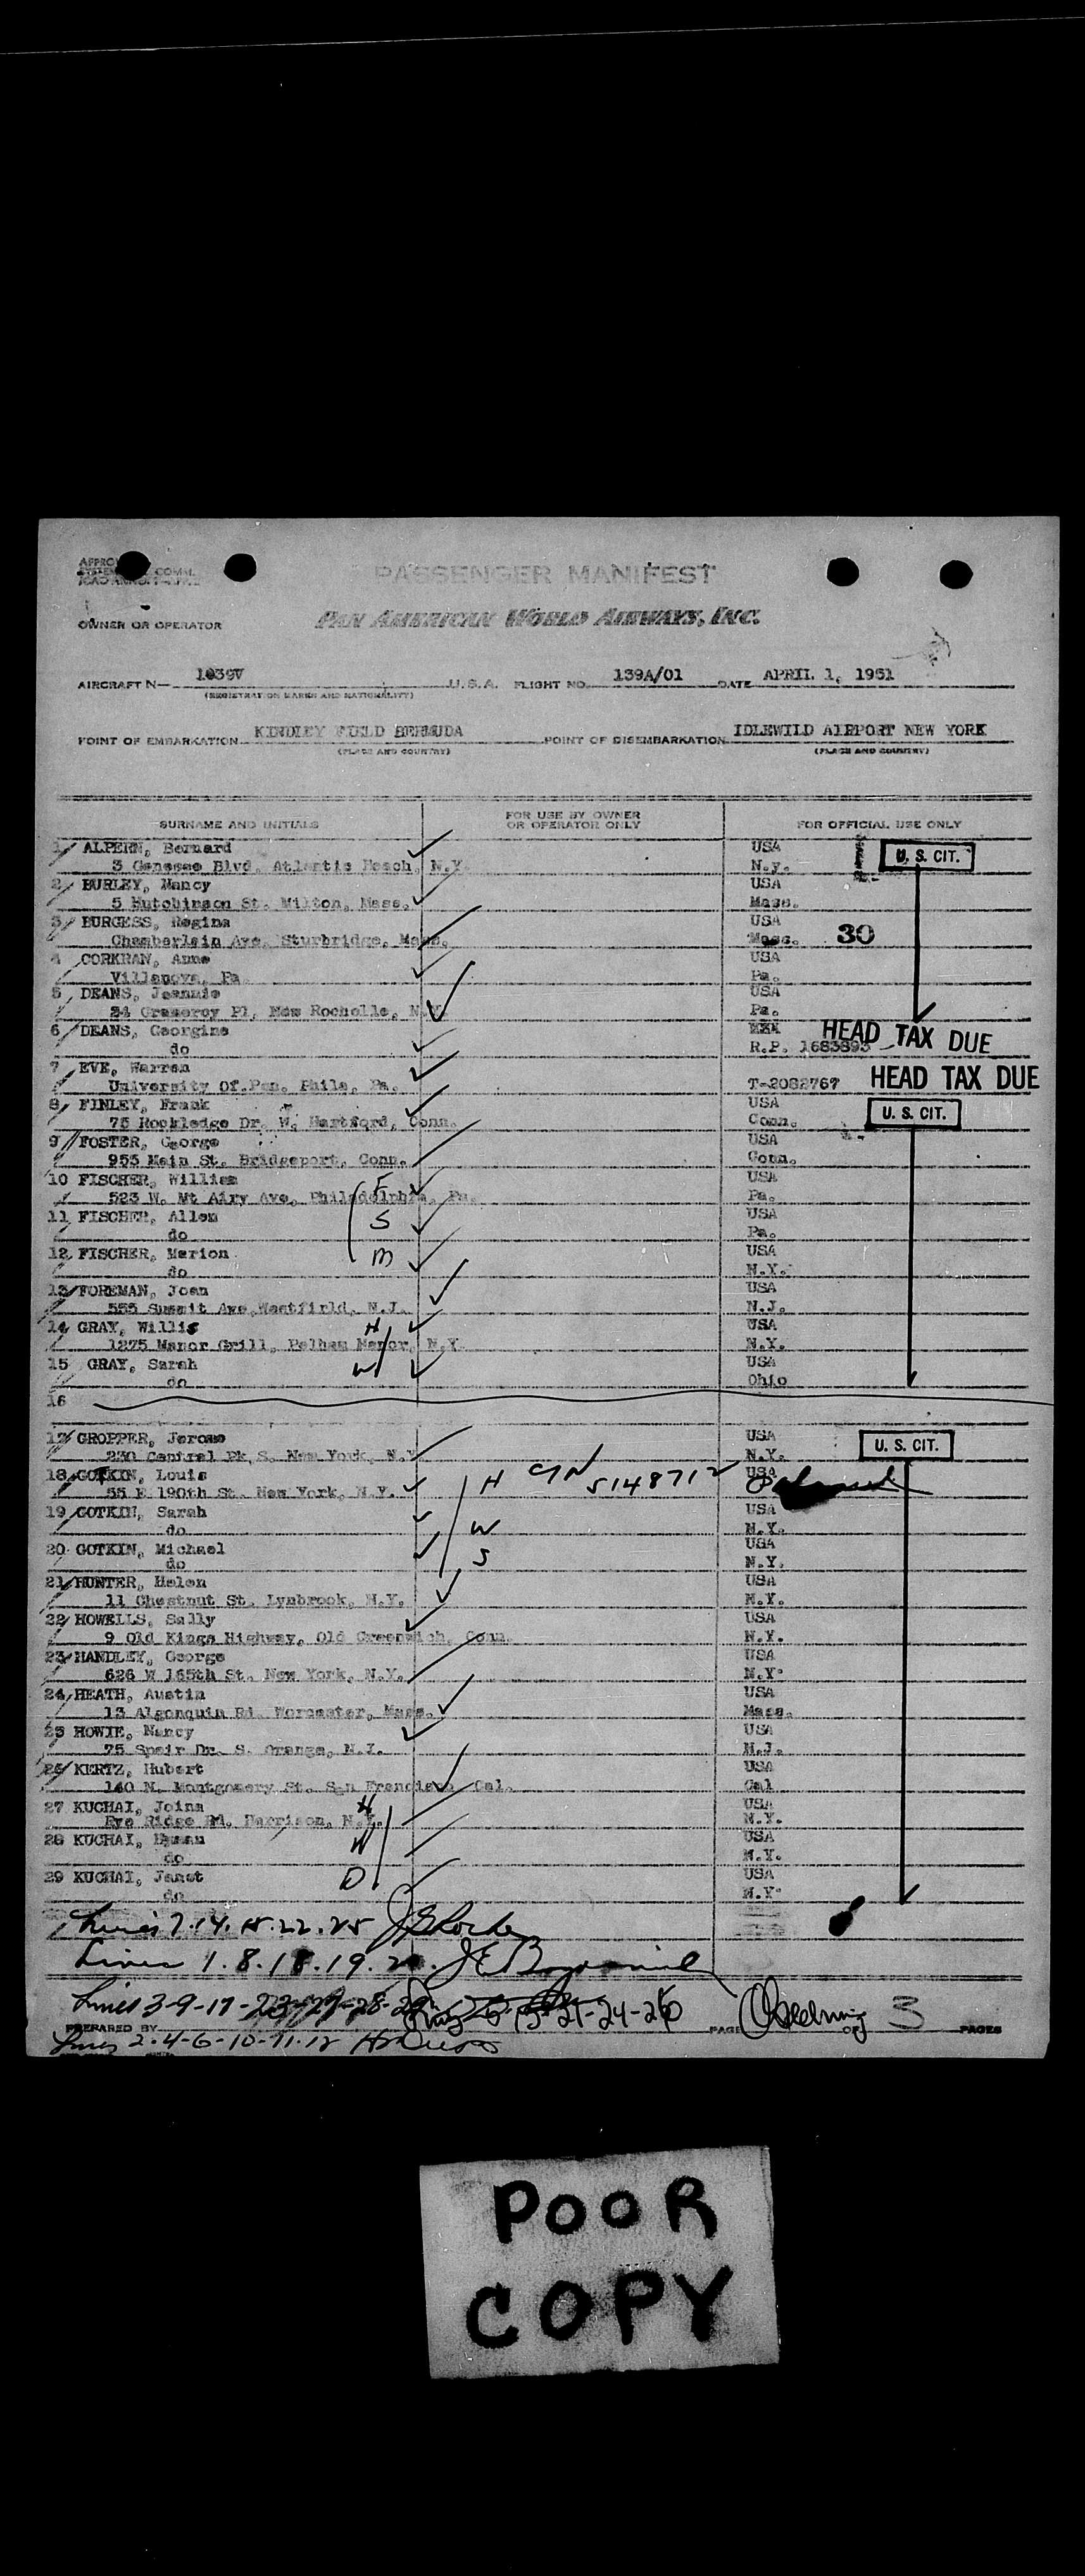 PASSENGER MANIFEST
OWNER OR OPERATOR PAN AMERICAN WORLD AIRWAYS, INC.
AIRCRAFT N— 1039V U.S.A. FLIGHT NO. 139A/01 DATE APRIL 1, 1951
(REGISTRATION MARKS AND NATIONALITY)
POINT OF EMBARKATION KINDLEY FIELD BERMUDA POINT OF DISEMBARKATION IDLEWILD AIRPORT NEW YORK
(PLACE AND COUNTRY) (PLACE AND COUNTRY)
SURNAME AND INITIALS FOR USE BY OWNER OR OPERATOR ONLY FOR OFFICIAL USE ONLY
1 ALPERN, Bernard USA U. S. CIT.
3 Genesee Blvd. Atlantic Beach, N.Y. N.y.
2 BURLEY, Nancy USA
5 Hutchinson St. Milton, Mass. Mass.
3 BURGESS, Regina USA
Chamberlain Ave. Sturbridge, Mass. Mass. 30
4 CORKRAN, Anne USA
Villanova, Pa. Pa.
5 DEANS, Jeannie USA
24 Gramercy Pl, New Rochelle, N.Y. Pa.
6 DEANS, Georgine HEAD TAX DUE
do R.P. 1683893
7 EVE, Warren
University Of.Pen. Phila, Pa. T-2082767 HEAD TAX DUE
8 FINLEY, Frank USA U. S. CIT.
75 Rockledge Dr. W. Hartford, Conn. Conn.
9 FOSTER, George USA
955 Main St. Bridgeport, Conn. Conn.
10 FISCHER, William F USA
523 W. Mt Airy Ave, Philadelphia, Pa. Pa.
11 FISCHER, Allen S USA
do Pa.
12 FISCHER, Marion M USA
do N.Y.
13 FOREMAN, Joan USA
555 Summit Ave, Westfield, N.J. N.J.
14 GRAY, Willis H USA
1275 Manor Grill, Pelham Manor, N.Y. N.Y.
15 GRAY, Sarah W USA
do Ohio
16
17 GROPPER, Jerome USA U. S. CIT.
230 Central Pk, S. New York, N.Y. N.Y.
18 GOTKIN, Louis H C/N 5148712 USA
55 E 190th St. New York, N.Y.
19 GOTKIN, Sarah W USA
do N.Y.
20 GOTKIN, Michael S USA
do N.Y.
21 HUNTER, Helen USA
11 Chestnut St. Lynbrook, N.Y. N.Y.
22 HOWELLS, Sally USA
9 Old Kings Highway, Old Greenwich, Conn. N.Y.
23 HANDLEY, George USA
626 W 165th St. New York, N.Y. N.Y.
24 HEATH, Austin USA
13 Algonquin Rd. Worcester, Mass. Mass.
25 HOWIE, Nancy USA
75 Speir Dr. S. Orange, N.J. N.J.
26 KERTZ, Hubert USA
140 N. Montgomery St. San Francisco, Cal. Cal
27 KUCHAI, Joina H USA
Rye Ridge Rd. Harrison, N.Y. N.Y.
28 KUCHAI, W USA
do N.Y.
29 KUCHAI, Janet D USA
do N.Y.
Lines 7.14.15.22.25
Lines 1.8.18.19.20.
Lines 3-9-17-23-27-28-29 21-24-26
PREPARED BY PAGE OF 3 PAGES
Lines 2-4-6-10-11-12
POOR
COPY